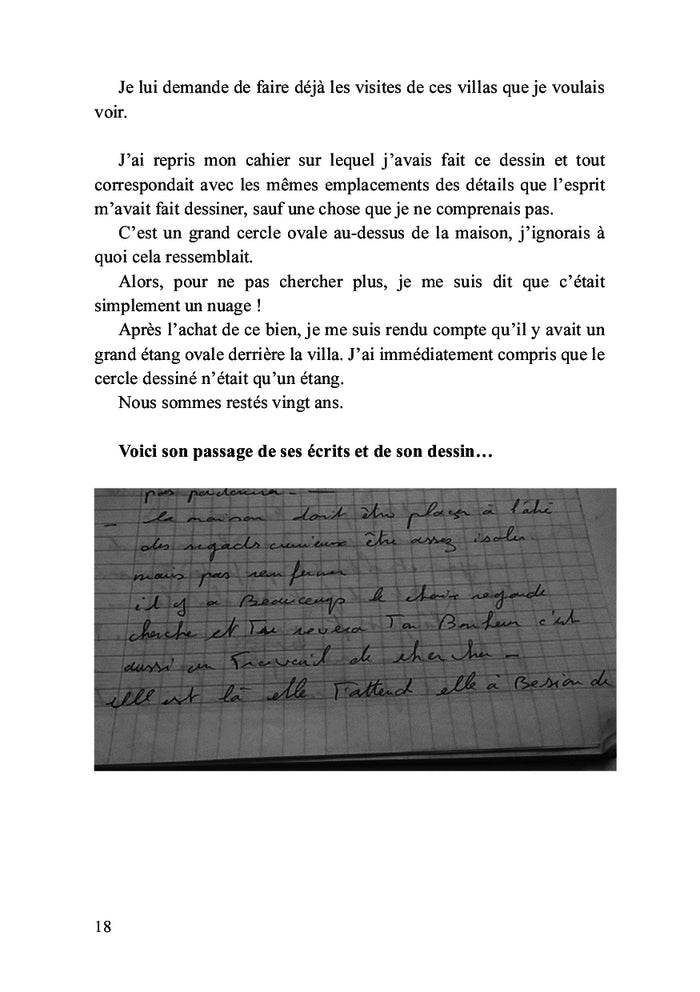 Je lui demande de faire déjà les visites de ces villas que je voulais
voir.
J’ai repris mon cahier sur lequel j’avais fait ce dessin et tout
correspondait avec les mêmes emplacements des détails que l’esprit
m’avait fait dessiner, sauf une chose que je ne comprenais pas.
C’est un grand cercle ovale au-dessus de la maison, j’ignorais à
quoi cela ressemblait.
Alors, pour ne pas chercher plus, je me suis dit que c’était
simplement un nuage !
Après l’achat de ce bien, je me suis rendu compte qu’il y avait un
grand étang ovale derrière la villa. J’ai immédiatement compris que le
cercle dessiné n’était qu’un étang.
Nous sommes restés vingt ans.
Voici son passage de ses écrits et de son dessin…
pas
– la maison doit être à
des regards curieux être assez
mais pas
il y a Beaucoup de choix regarde
cherche et Tu Ton Bonheur c'est
aussi un Travail de chercher –
est là elle T'attend elle à de
18